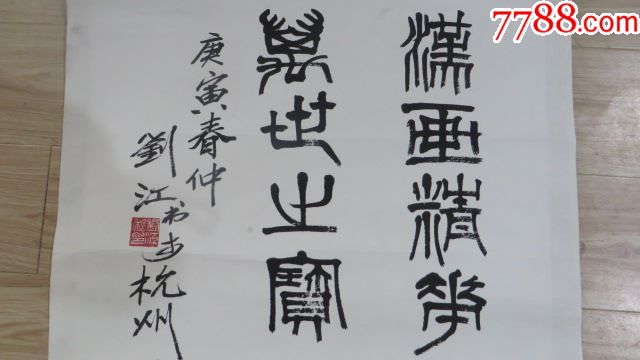 漢画精華
萬世之寶
庚寅春仲
劉江书于杭州
7788.com